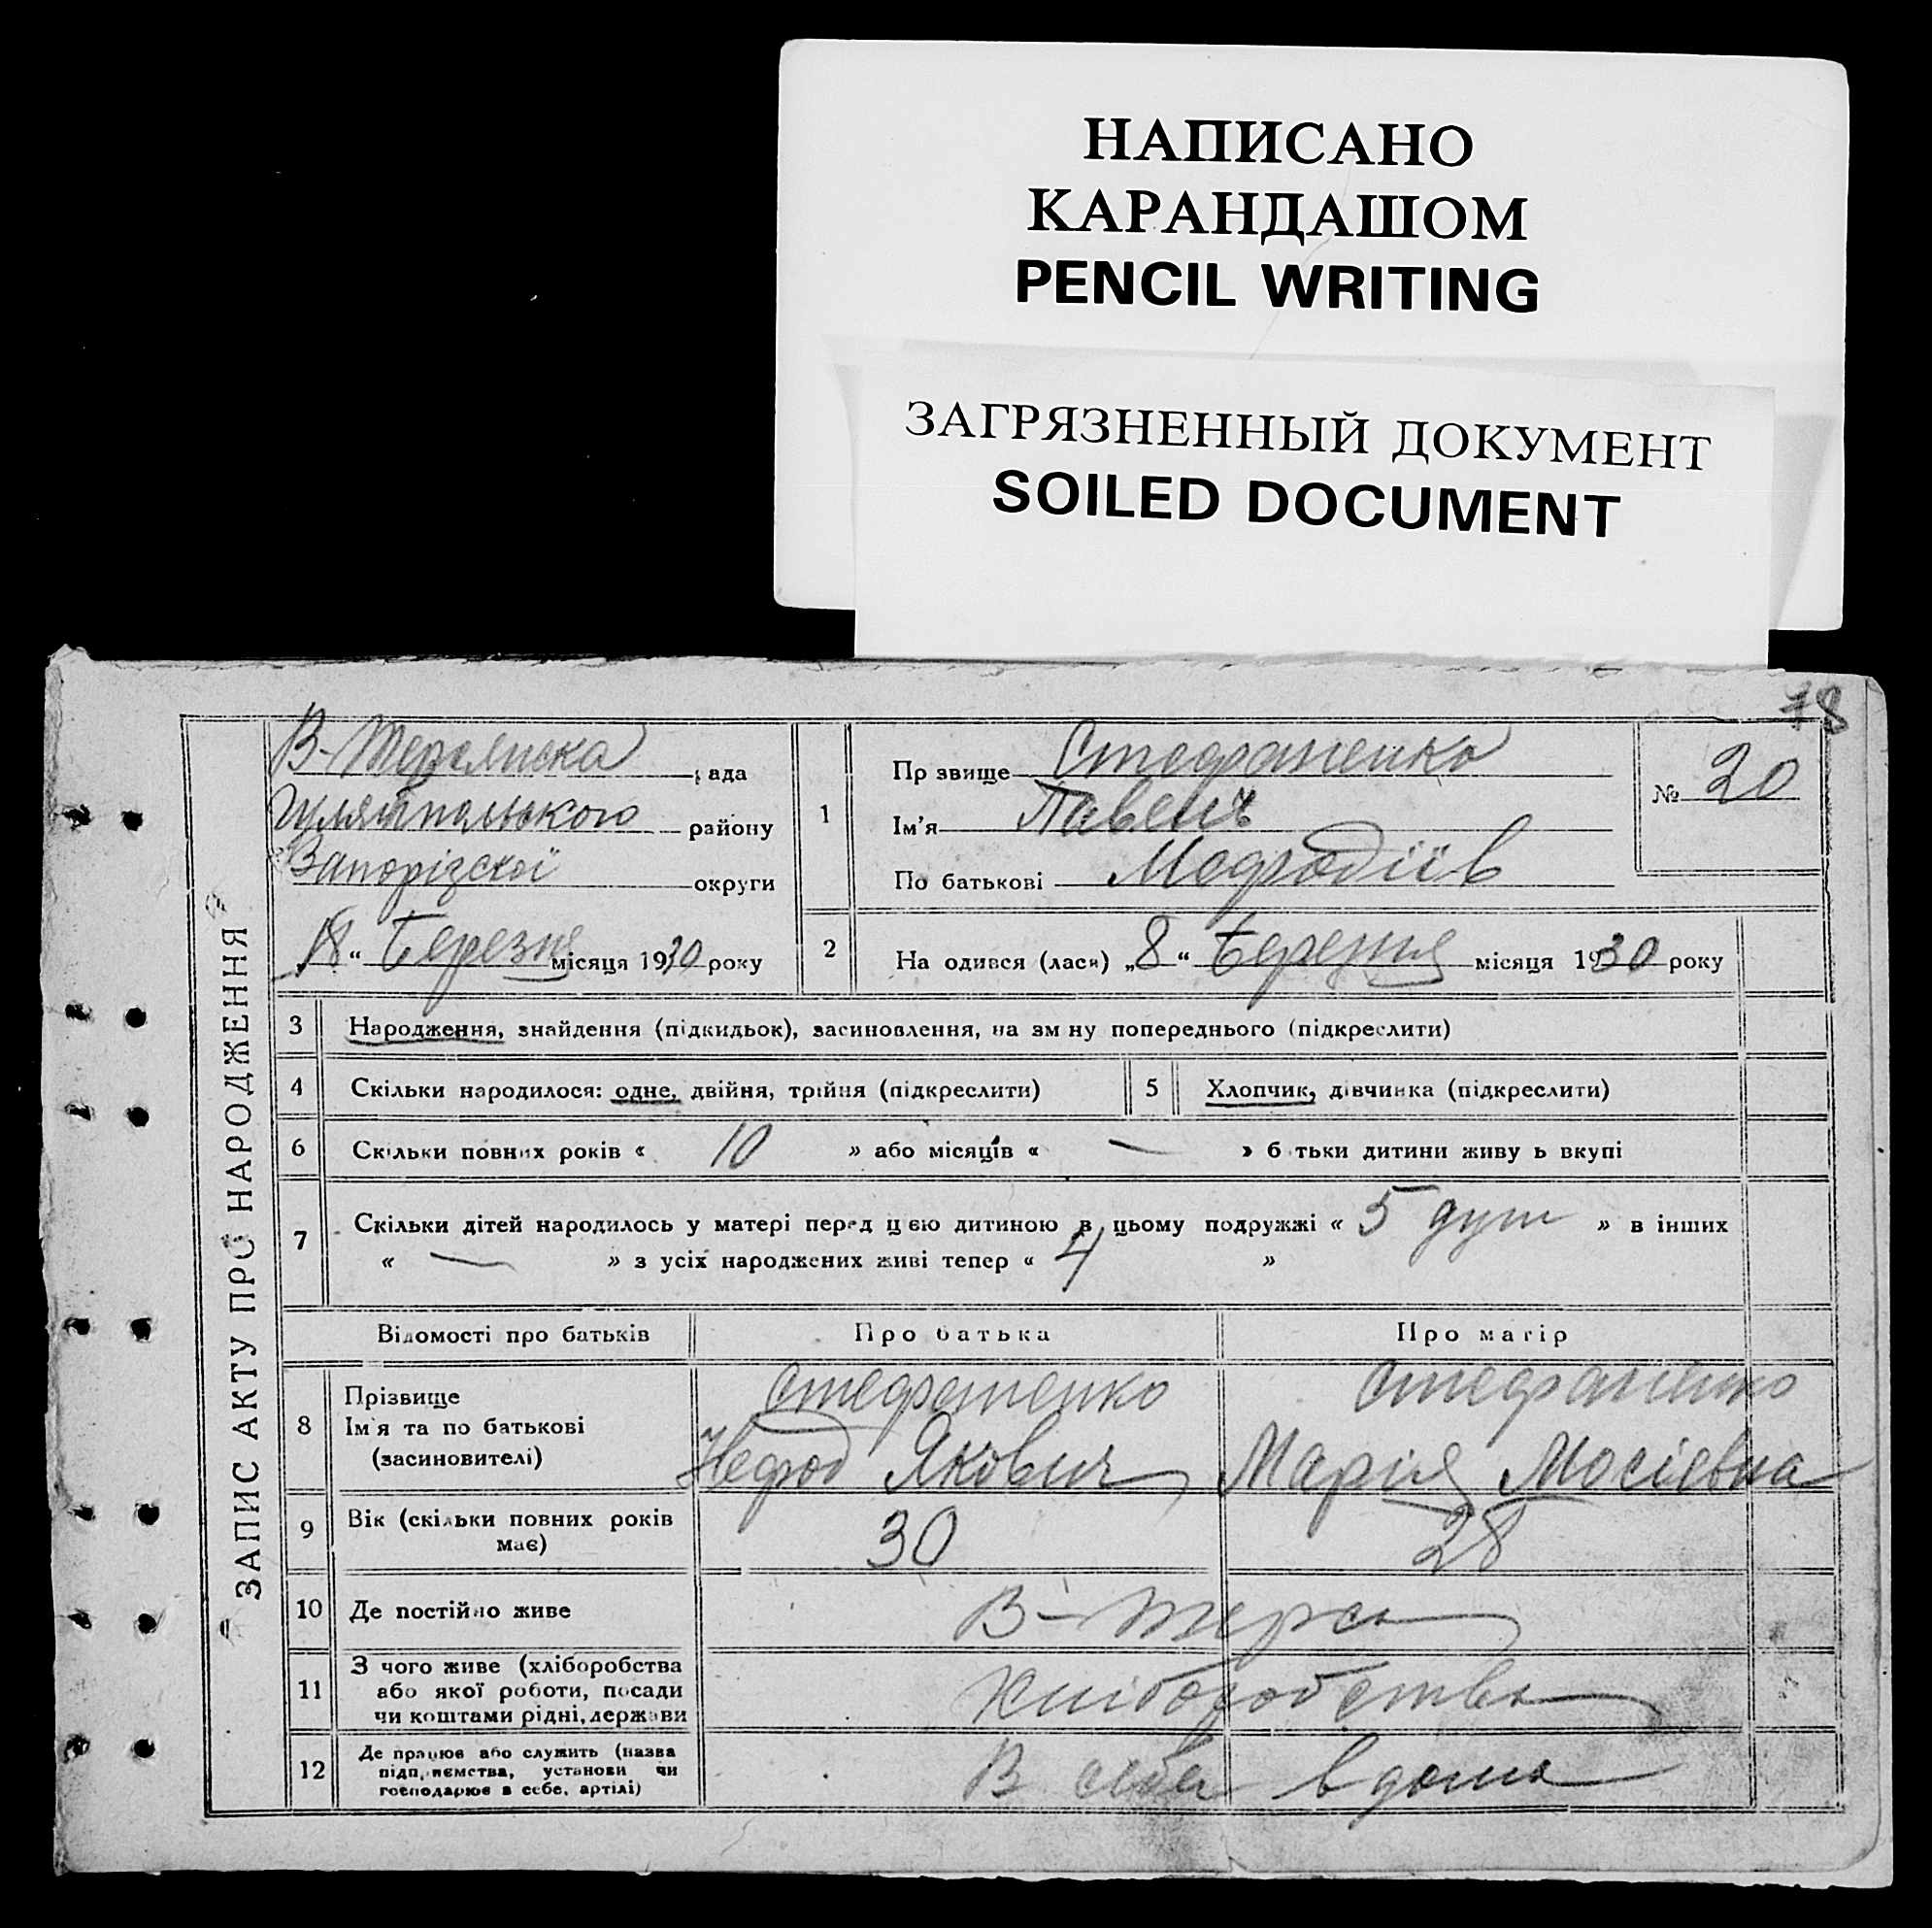 НАПИСАНО
КАРАНДАШОМ
PENCIL WRITING
ЗАГРЯЗНЕННЫЙ ДОКУМЕНТ
SOILED DOCUMENT
78
ЗАПИС АКТУ ПРО НАРОДЖЕННЯ
рада
Гуляйпольського району
Запорізскої округи
18 " Березня місяця 1930 року
1
Пр звище Стефаненко
Ім'я
По батькові Мефодіїв
№ 20
2
На одився (лася) „8 " Березня місяця 1930 року
3 Народження, знайдення (підкидьок), засиновлення, на зм ну попереднього (підкреслити)
4 Скільки народилося: одне, двійня, трійня (підкреслити) 5 Хлопчик, дівчинка (підкреслити)
6 Скільки повних років « 10 » або місяців « — » б тьки дитини живу ь вкупі
7 Скільки дітей народилось у матері перед цією дитиною в цьому подружжі « 5 душ » в інших
« — » з усіх народжених живі тепер « 4 »
Відомості про батьків Про батька Про матір
8 Прізвище
Ім'я та по батькові
(засиновителі)
Стефаненко
Якович
Стефаненко
Марія Мосієвна
9 Вік (скільки повних років
має)
30 28
10 Де постійно живе В-Терса
11 З чого живе (хліборобства
або якої роботи, посади
чи коштами рідні, держави
Хліборобство
12 Де працює або служить (назва
підприємства, установи чи
господарює в себе, артілі)
В себе вдома